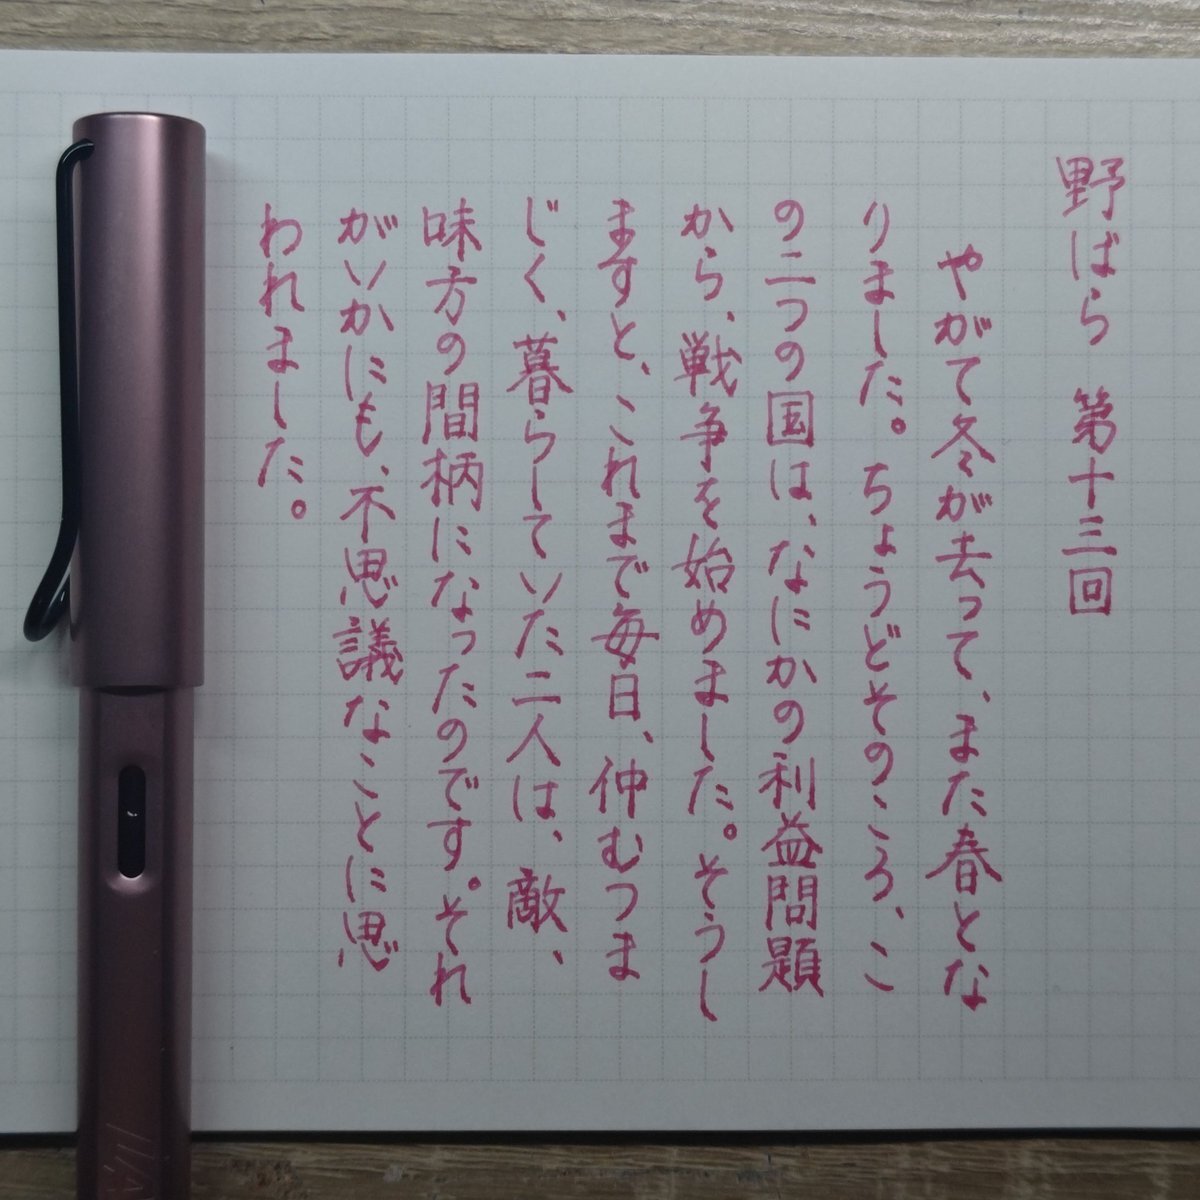 野ばら 第十三回
やがて冬が去って、また春とな
りました。ちょうどそのころ、こ
の二つの国は、なにかの利益問題
から、戦争を始めました。そうし
ますと、これまで毎日、仲むつま
じく、暮らしていた二人は、敵、
味方の間柄になったのです。それ
がいかにも、不思議なことに思
われました。